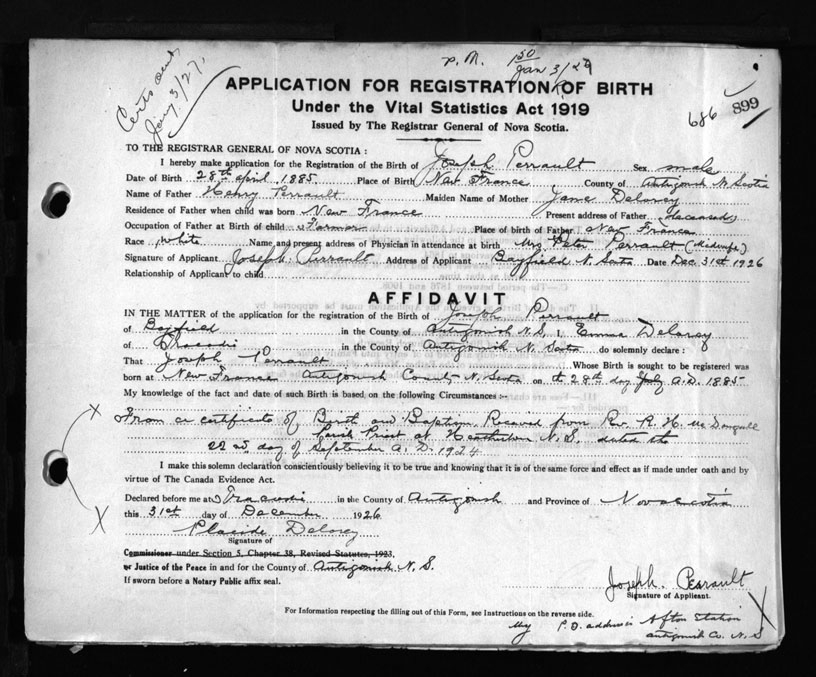 Certs sent
Jany 3/27.
P. M. 1 50
Jan 3/27
686 899
APPLICATION FOR REGISTRATION OF BIRTH
Under the Vital Statistics Act 1919
Issued by The Registrar General of Nova Scotia.
TO THE REGISTRAR GENERAL OF NOVA SCOTIA :
I hereby make application for the Registration of the Birth of Joseph Perrault Sex male
Date of Birth 28th april 1885 Place of Birth New France County of Antigonish N. Scotia
Name of Father Henry Perrault Maiden Name of Mother Jane Delorey
Residence of Father when child was born New France Present address of Father (deceased)
Occupation of Father at Birth of child Farmer Place of birth of Father New France
Race White Name and present address of Physician in attendance at birth Mrs Peter Perrault (Midwife)
Signature of Applicant Joseph Perrault Address of Applicant Bayfield N. Scotia Date Dec 31st 1926
Relationship of Applicant to child
AFFIDAVIT
IN THE MATTER of the application for the registration of the Birth of Joseph Perrault
of Bayfield in the County of Antigonish N.S. I, Emma Delorey
of Tracadie in the County of Antigonish N. Scotia do solemnly declare :
That Joseph Perrault Whose Birth is sought to be registered was
born at New France Antigonish County N. Scotia on the 28th day July A.D. 1885
My knowledge of the fact and date of such Birth is based, on the following Circumstances :-
From a certificate of Birth and Baptism Received from Rev. R. H. McDougall
Parish Priest at Heatherton N.S. dated the
22nd day of September A.D. 1924
I make this solemn declaration conscientiously believing it to be true and knowing that it is of the same force and effect as if made under oath and by
virtue of The Canada Evidence Act.
Declared before me at Tracadie in the County of Antigonish and Province of Nova Scotia
this 31st day of December 1926
Placide Delorey
Signature of
Commissioner under Section 5, Chapter 38, Revised Statutes, 1923.
or Justice of the Peace in and for the County of Antigonish N.S.
If sworn before a Notary Public affix seal.
Joseph Perrault
Signature of Applicant.
For Information respecting the filling out of this Form, see Instructions on the reverse side.
My P.O. address is Afton Station
Antigonish Co. N.S